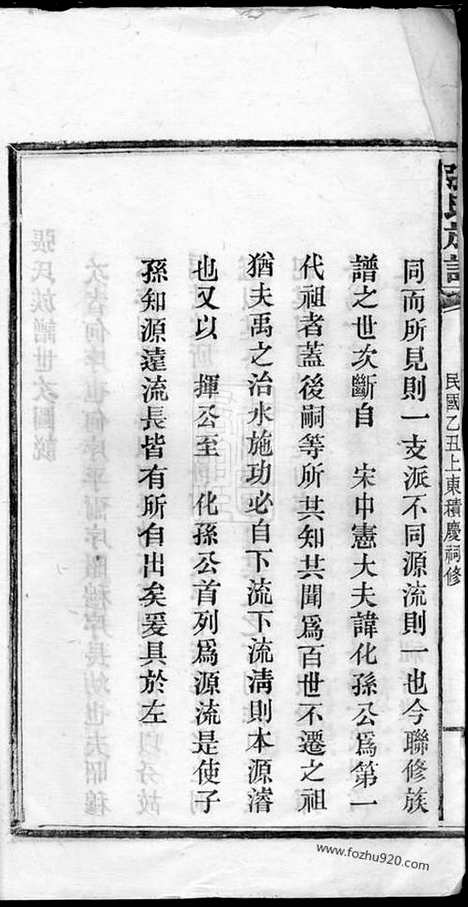 張氏族譜
民國乙丑上東積慶祠修
同而所見則一支派不同源流則一也今聯修族
譜之世次斷自 宋中憲大夫諱化孫公爲第一
代祖者蓋後嗣等所共知共聞爲百世不遷之祖
猶夫禹之治水施功必自下流下流淸則本源濬
也又以 揮公至 化孫公首列爲源流是使子
孫知源遠流長皆有所自出矣爰具於左
張氏族譜世次圖說
www.fozhu920.com